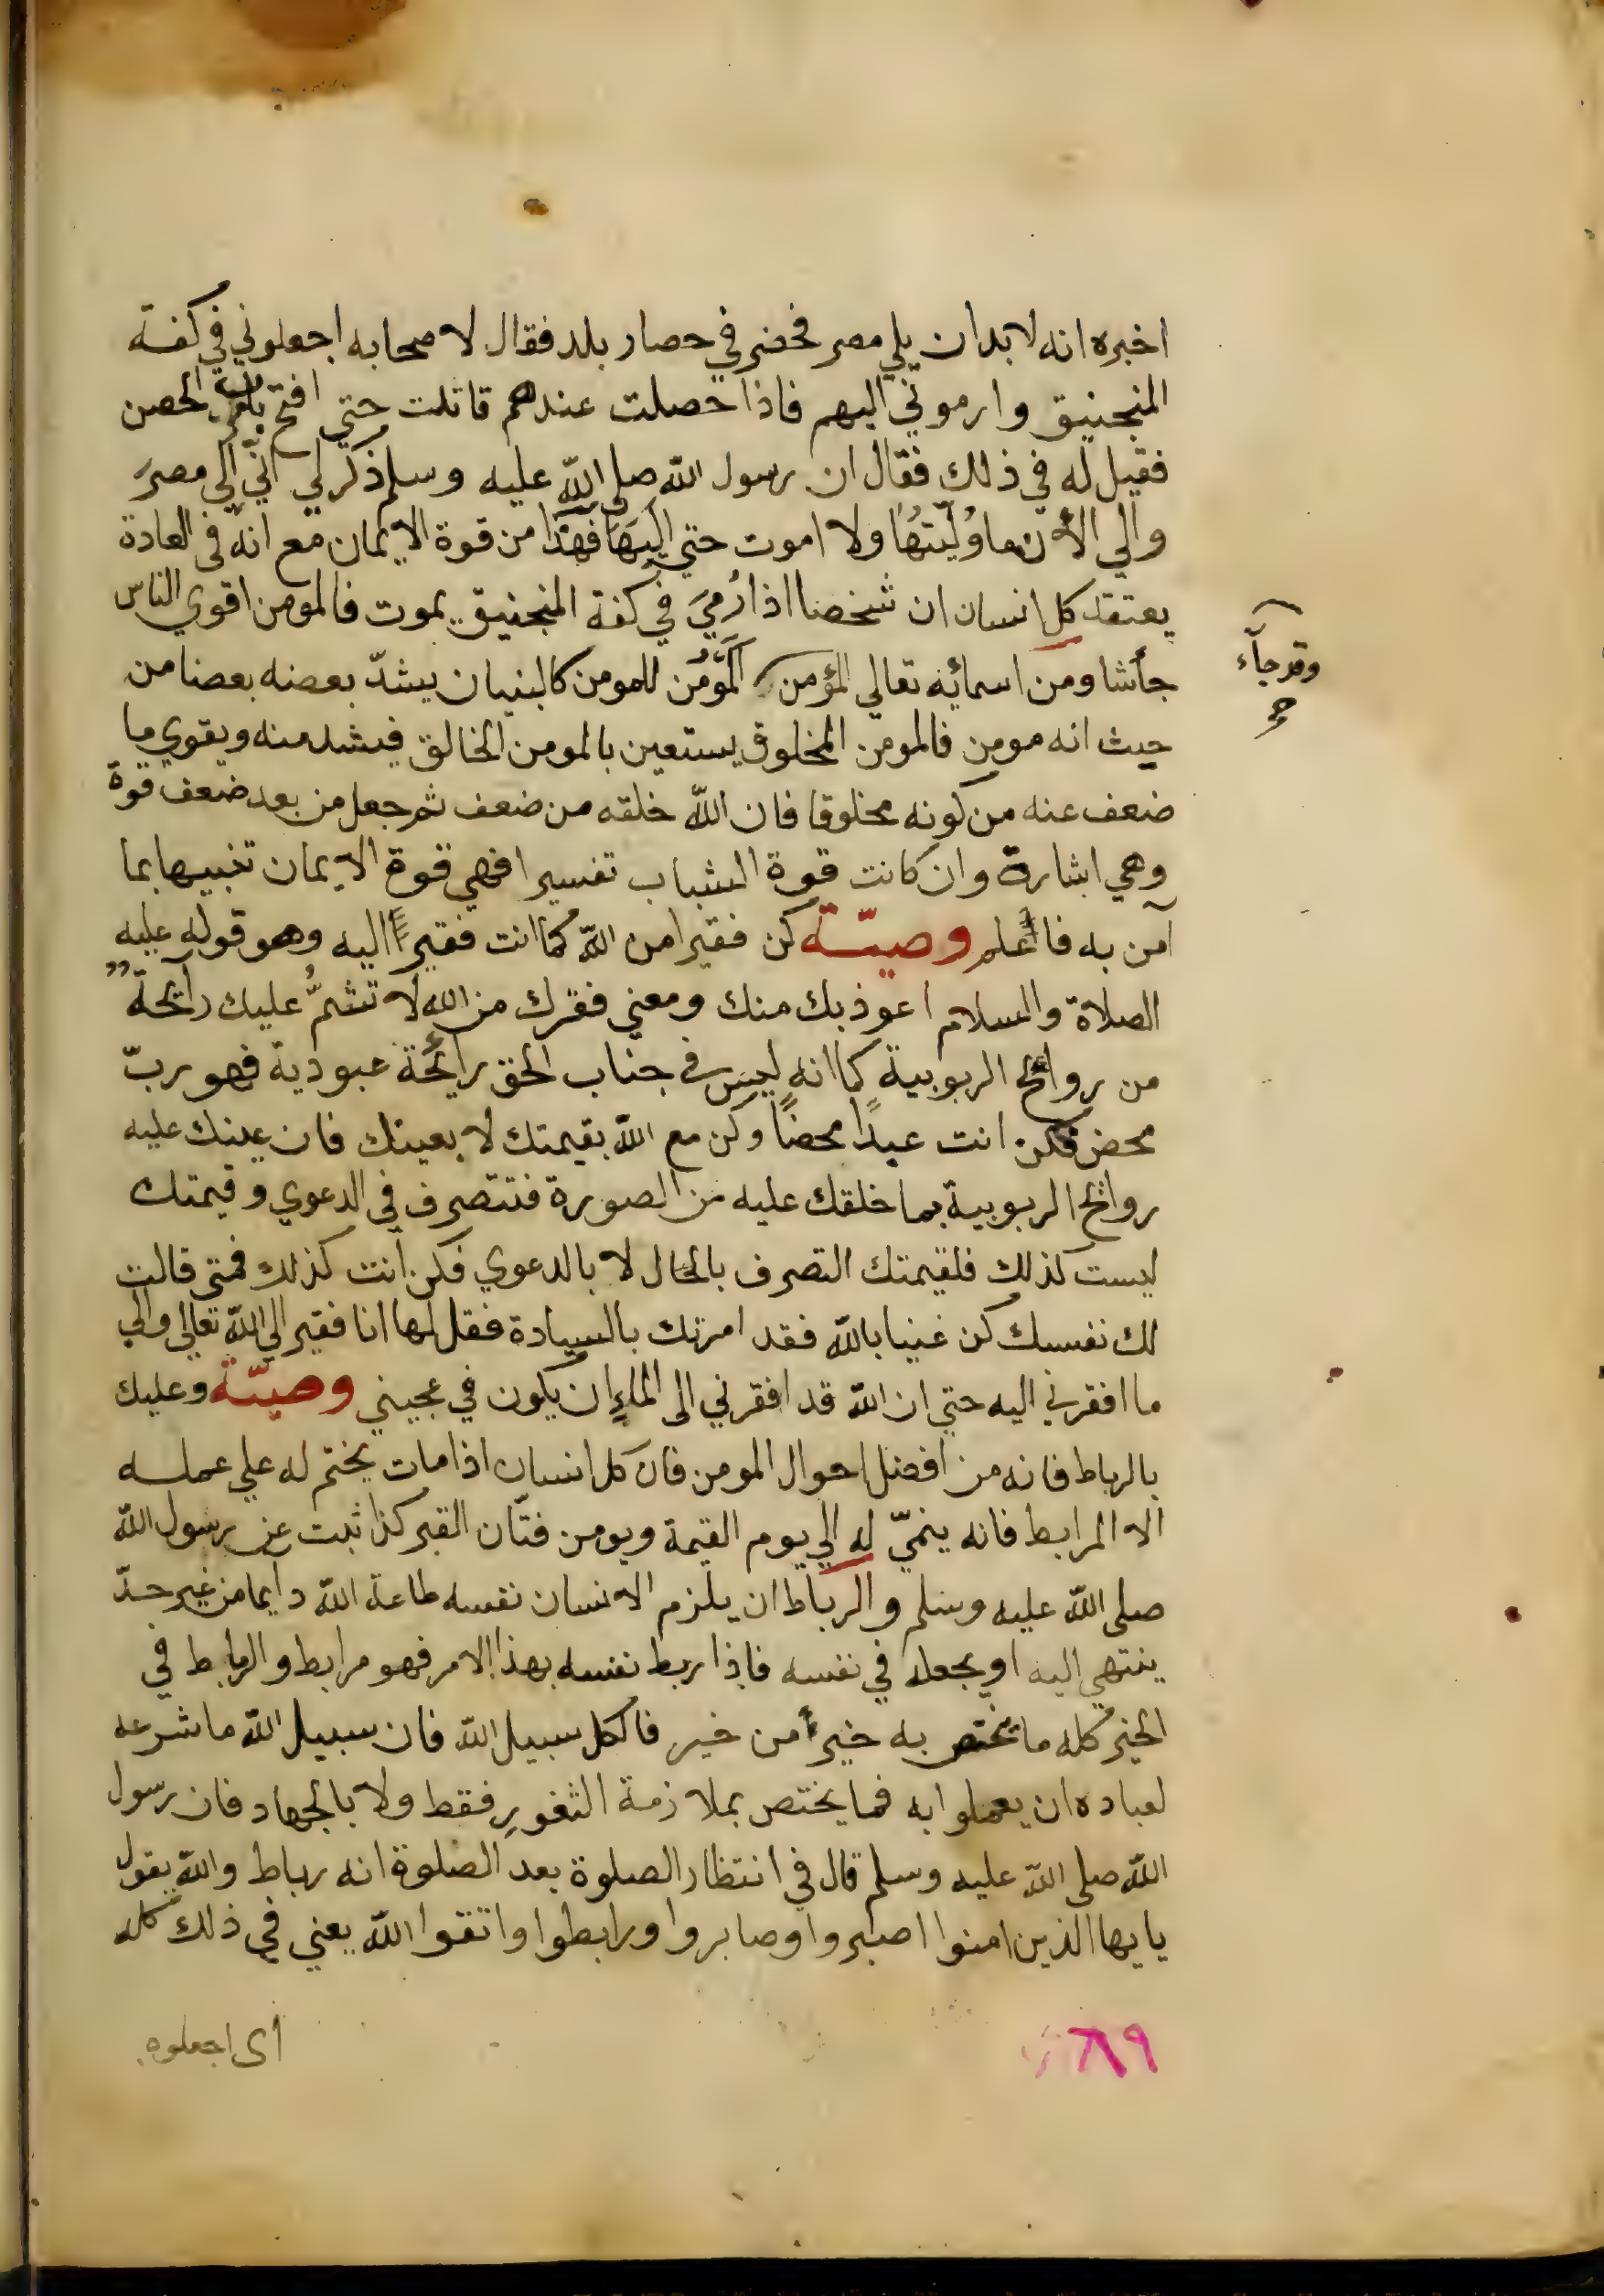 اخبره انه لا بد ان يلي مصر فحضر في حصار بلد فقال لاصحابه اجعلوني في كفة
المنجنيق وارموني اليهم فاذا حصلت عندهم قاتلت حتي افتح باب الحصن
فقيل له في ذلك فقال ان رسول الله صلى الله عليه وسلم ذكر لي اني الي مصر
والي الآن ما وُلِّيتُها ولا اموت حتي اليَها فهذا من قوة الايمان مع انه في العادة
يعتقد كل انسان ان شخصا اذا رُميَ في كفة المنجنيق يموت فالمومن اقوي الناس
جأشا ومن اسمائه تعالي المؤمن المؤمن للمومن كالبنيان يشدّ بعضه بعضا من
وقد جآء
صح
حيث انه مومن فالمومن المخلوق يستعين بالمومن الخالق فيشد منه ويقوي ما
ضعف عنه من كونه مخلوقا فان الله خلقه من ضعف ثم جعل من بعد ضعف قوة
وهي اشارة وان كانت قوة الشباب تفسيرا فهي قوة الايمان تنبيها بما
آمن به فاعلم وصيّة كن فقيرا من الله كما انت فقيرا اليه وهو قوله عليه
الصلاة والسلام اعوذ بك منك ومعني فقرك من الله لا تشمُّ عليك رآيحة
من روائح الربوبية كما انه ليس في جناب الحق رائحة عبودية فهو ربّ
محض فكن انت عبدًا محضًا وكن مع الله بقيمتك لا بعينك فان عينك عليه
روائح الربوبية بما خلقك عليه من الصورة فتتصرف في الدعوي وقيمتك
ليست كذلك فلقيمتك التصرف بالحال لا بالدعوي فكن انت كذلك فمتي قالت
لك نفسك كن غنيا بالله فقد امرتك بالسيادة فقل لها انا فقير الي الله تعالى والي
ما افقرني اليه حتي ان الله قد افقرني الى الملح ان يكون في عجيني وصيّة وعليك
بالرباط فانه من افضل احوال المومن فان كل انسان اذا مات يختم له علي عمله
الا المرابط فانه ينميّ له الي يوم القيمة ويومن فتّان القبر كذا ثبت عن رسول الله
صلى الله عليه وسلم والرباط ان يلزم الانسان نفسه طاعة الله دايما من غير حدّ
ينتهي اليه او يجعله في نفسه فاذا ربط نفسه بهذا الامر فهو مرابط والرباط في
الخير كله ما يختص به خير من خير فالكل سبيل الله فان سبيل الله ما شرعه
لعباده ان يعملوا به فما يختص بملازمة الثغور فقط ولا بالجهاد فان رسول
الله صلى الله عليه وسلم قال في انتظار الصلوة بعد الصلوة انه رباط والله يقول
يايها الذين امنوا اصبروا وصابروا ورابطوا واتقوا الله يعني في ذلك كله
أى اجعلوه